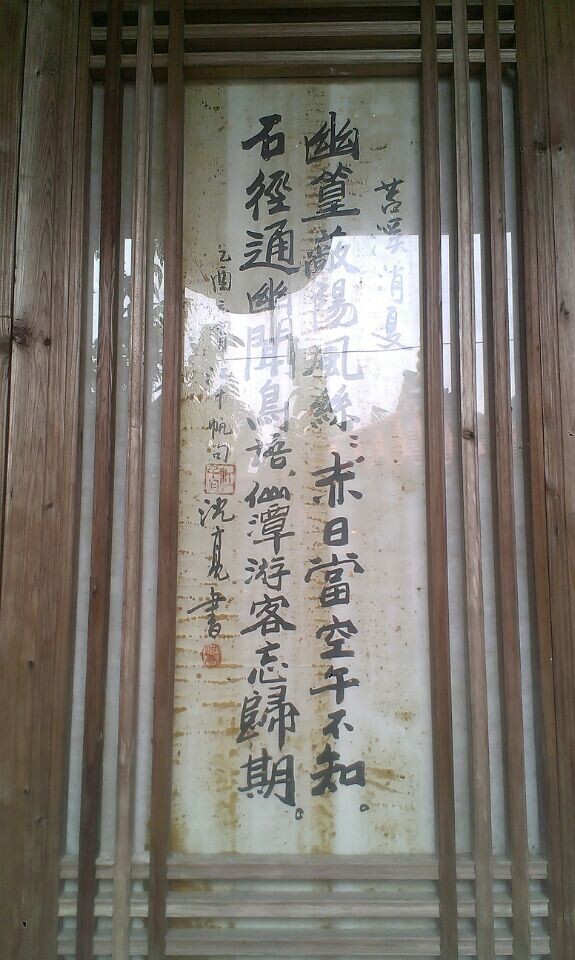 苕溪消夏
幽篁蔽陽風絲〻赤日當空午不知。
石徑通幽聞鳥語、仙潭游客忘歸期。
乙酉 千帆句
沈亮書